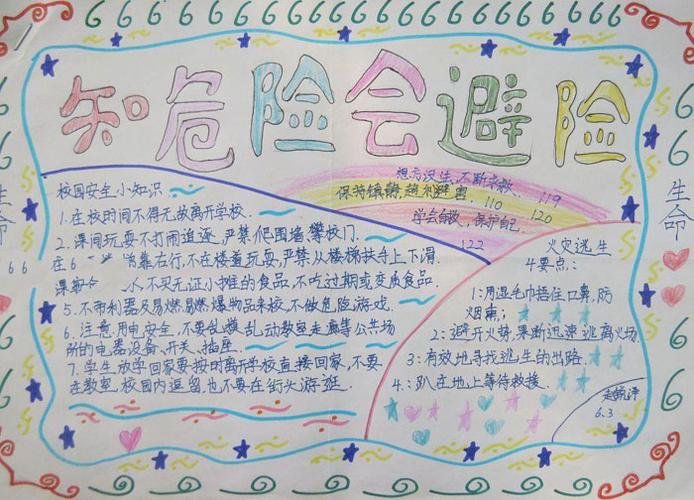 知危险会避险
生命
生命
校园安全小知识
1.在校时间不得无故离开学校.
2.课间玩耍不打闹追逐,严禁爬围墙,攀校门.
靠右行,不在楼道玩耍,严禁从楼梯扶手上下滑.
不买无证小摊的食品,不吃过期或变质食品.
5.不带利器及易燃易燃爆物品来校,不做危险游戏.
6.注意用电安全,不要乱摸乱动教室走廊等公共场
所的电器设备、开关、插座.
7.学生放学回家要按时离开学校直接回家,不要
在教室、校园内逗留,也不要在街头游逛.
想方设生,不断求救. 119
保持镇静,趋利避害. 110
学会自救,保护自己. 120
122
火灾逃生
4要点:
1:用湿毛巾捂住口鼻,防
烟毒;
2:避开火势,果断迅速逃离火场.
3:有效地寻找逃生的出路.
4:趴在地上等待救援.
6.3